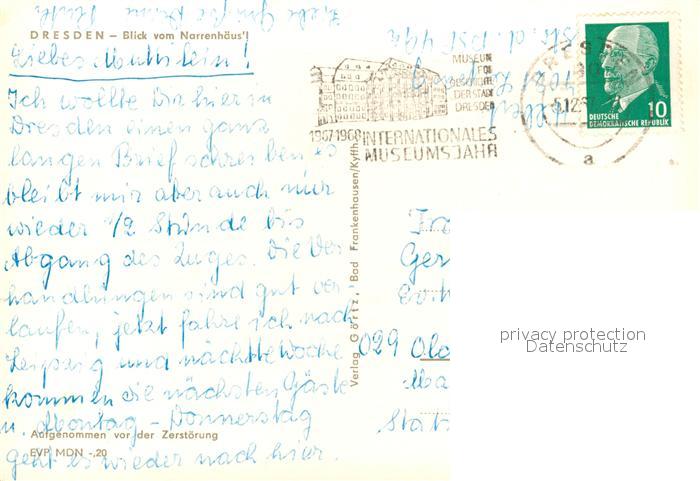 DRESDEN – Blick vom Narrenhäus'l
Liebes Muhslein!
Ich wollte Dir hier in
Dresden einen ganz
langen Brief schreiben es
bleibt mir aber auch nur
wieder 1/2 Stunde bis
Abgang des Zuges. Die Ver
handlungen sind gut ver-
laufen, jetzt fahre ich nach
Leipzig und nächste Woche
kommen die nächsten Gäste
u. Montag - Donnerstag
geht es wieder nach hier.
Aufgenommen vor der Zerstörung
EVP MDN -,20
Verlag Görtz, Bad Frankenhausen/Kyffh.
MUSEUM
FÜR
GESCHICHTE
DER STADT
DRESDEN
1967-1968 INTERNATIONALES
MUSEUMSJAHR
DRESDEN
5.12.67
a
10
DEUTSCHE
DEMOKRATISCHE REPUBLIK
Ger
029 Old
Stat
privacy protection
Datenschutz